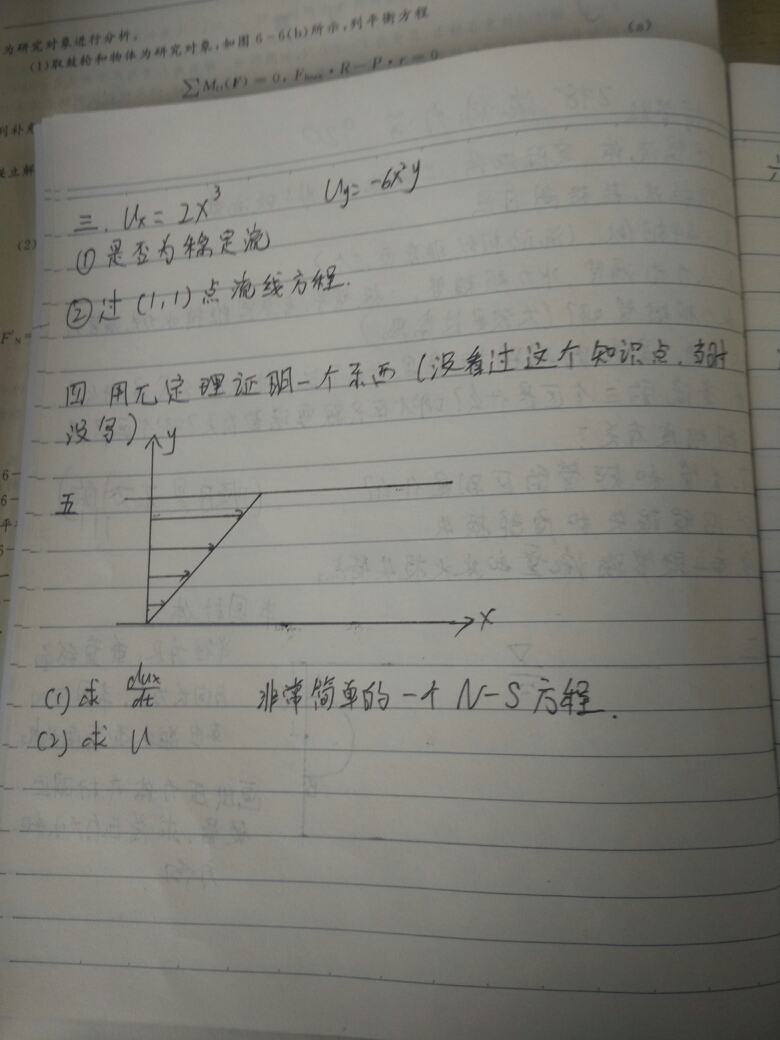 为研究对象进行分析。
(1)取鼓轮和物体为研究对象,如图6-6(b)所示,列平衡方程
(a)
∑M₀(F)=0, Fₘₐₓ·R-P·r=0
列补充
联立解
(2)
三. Ux = 2x³ Uy = -6x²y
① 是否为稳定流
② 过 (1,1) 点 流线方程.
四 用π定理证明一个东西 (没看过这个知识点,当时
没写)
y
五
x
(1) 求 dux/dt 非常简单的一个 N-S 方程.
(2) 求 U